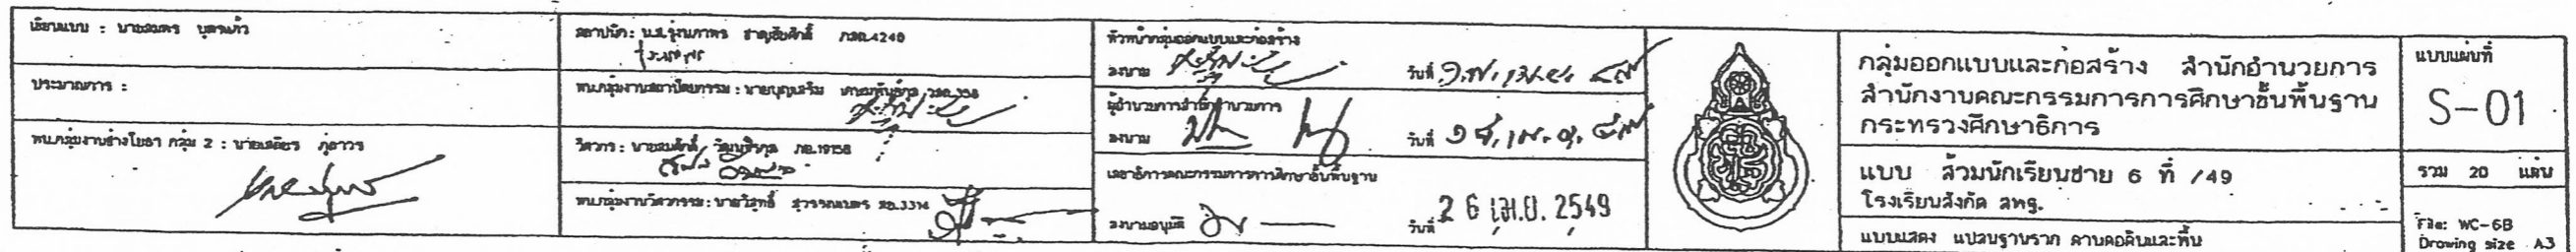 เขียนแบบ : นายสมพร บุตรแก้ว
ประมาณการ :
หน.กลุ่มงานช่างโยธา กลุ่ม 2 : นายเสถียร ภู่ถาวร
สถาปนิก: น.ส.รุ่งนภาพร ภสถ.4240
หน.กลุ่มงานสถาปัตยกรรม : นายบุญเสริม
วิศวกร : นายสมศักดิ์ วัฒนศิริกุล ภย.19158
หน.กลุ่มงานวิศวกรรม: นายวิสุทธิ์ สุวรรณเนตร สย.3314
หัวหน้ากลุ่มออกแบบและก่อสร้าง
ลงนาม วันที่
ผู้อำนวยการสำนักอำนวยการ
ลงนาม วันที่
เลขาธิการคณะกรรมการการศึกษาขั้นพื้นฐาน
ลงนามอนุมัติ วันที่ 26 เม.ย. 2549
กลุ่มออกแบบและก่อสร้าง สำนักอำนวยการ
สำนักงานคณะกรรมการการศึกษาขั้นพื้นฐาน
กระทรวงศึกษาธิการ
แบบ ส้วมนักเรียนชาย 6 ที่ /49
โรงเรียนสังกัด สพฐ.
แบบแสดง แปลนฐานราก คานคอดินและพื้น
แบบแผ่นที่
S-01
รวม 20 แผ่น
File: WC-6B
Drowing size A3